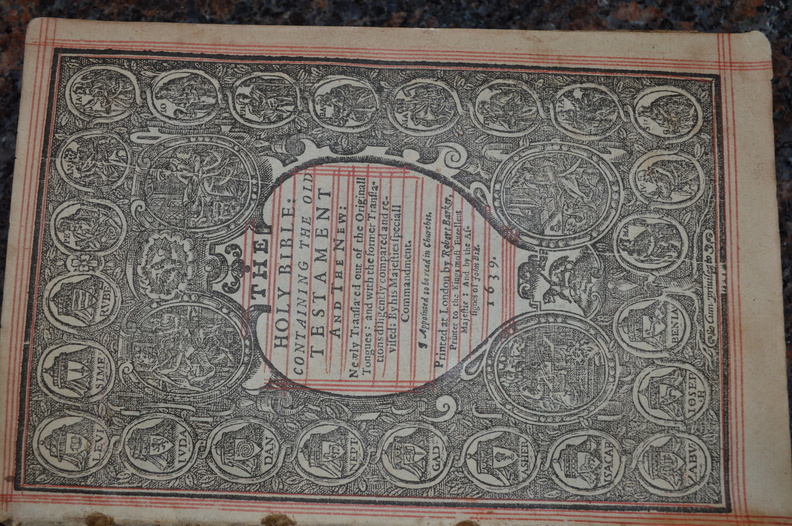 THE
HOLY BIBLE:
CONTAINING THE OLD
TESTAMENT
AND THE NEW:
Newly Translated out of the Originall
Tongues: and with the former Transla-
tions diligently compared and re-
vised: By his Majesties speciall
Commandment.
¶ Appointed to be read in Churches.
Printed at London by Robert Barker,
Printer to the Kings most Excellent
Majestie: And by the As-
signes of John Bill.
1639.
RVBE
SIME
LEVI
IVDA
DAN
NEPT
GAD
ASHED
ISACAR
ZABV
IOSEP
H
BENIA
Cum privilegio